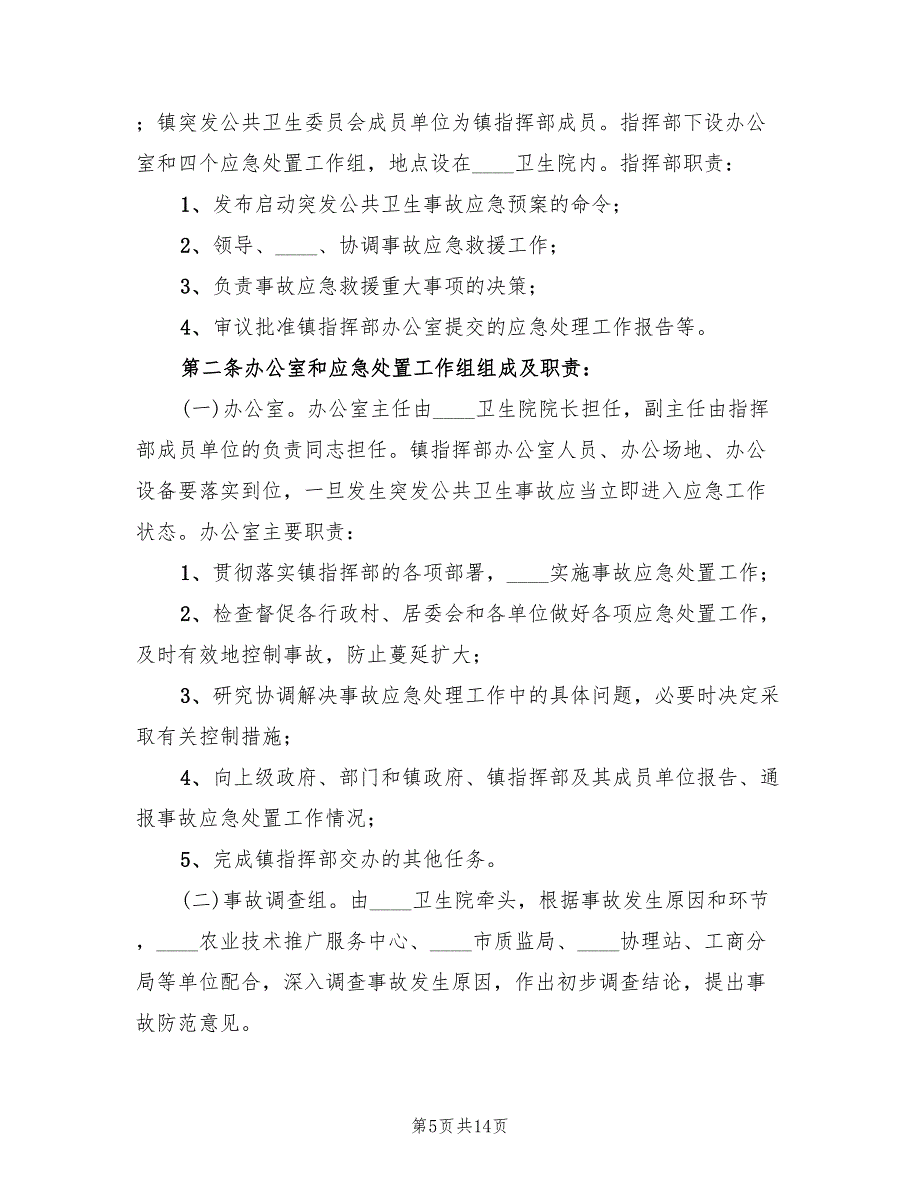 ；镇突发公共卫生委员会成员单位为镇指挥部成员。指挥部下设办公
室和四个应急处置工作组，地点设在____卫生院内。指挥部职责：
1、发布启动突发公共卫生事故应急预案的命令；
2、领导、____、协调事故应急救援工作；
3、负责事故应急救援重大事项的决策；
4、审议批准镇指挥部办公室提交的应急处理工作报告等。
第二条办公室和应急处置工作组组成及职责：
(一)办公室。办公室主任由____卫生院院长担任，副主任由指挥
部成员单位的负责同志担任。镇指挥部办公室人员、办公场地、办公
设备要落实到位，一旦发生突发公共卫生事故应当立即进入应急工作
状态。办公室主要职责：
1、贯彻落实镇指挥部的各项部署，____实施事故应急处置工作；
2、检查督促各行政村、居委会和各单位做好各项应急处置工作，
及时有效地控制事故，防止蔓延扩大；
3、研究协调解决事故应急处理工作中的具体问题，必要时决定采
取有关控制措施；
4、向上级政府、部门和镇政府、镇指挥部及其成员单位报告、通
报事故应急处置工作情况；
5、完成镇指挥部交办的其他任务。
(二)事故调查组。由____卫生院牵头，根据事故发生原因和环节
，____农业技术推广服务中心、____市质监局、____协理站、工商分
局等单位配合，深入调查事故发生原因，作出初步调查结论，提出事
故防范意见。
第5页共14页